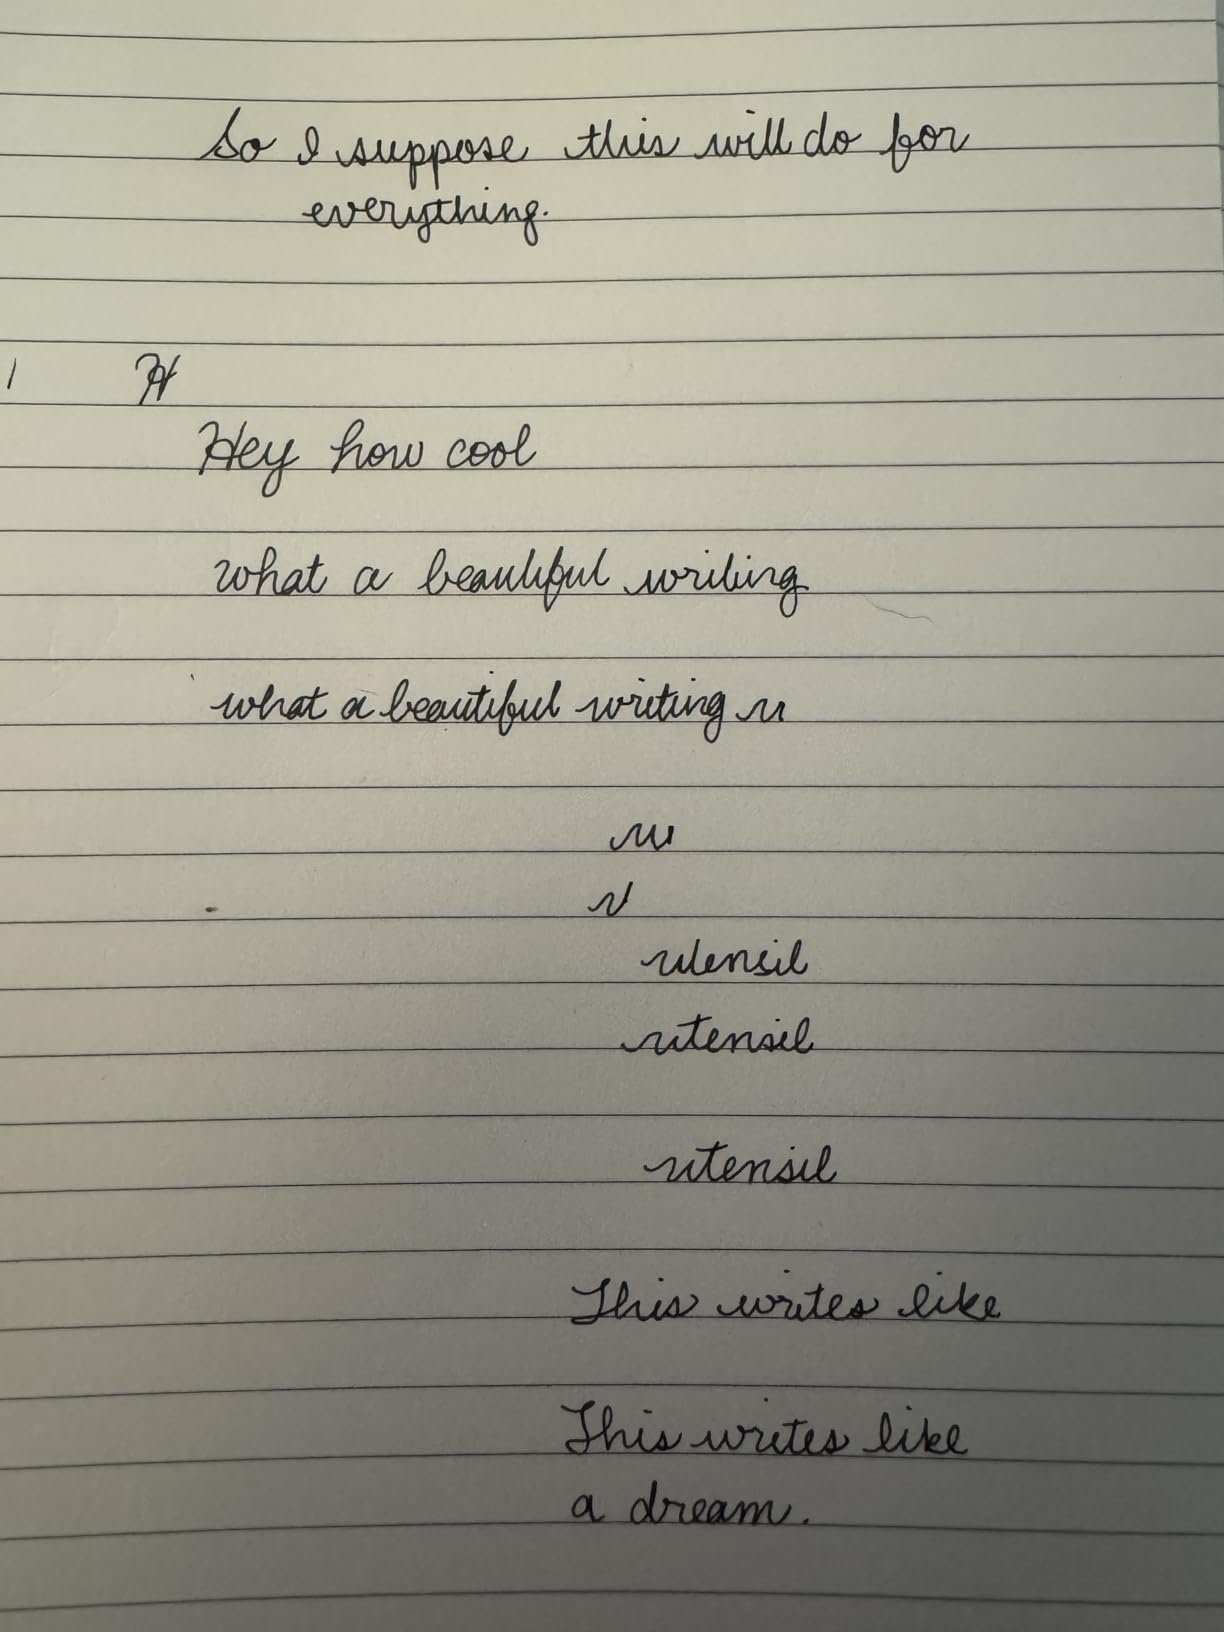 So I suppose this will do for
everything.
H
Hey how cool
what a beautiful writing
what a beautiful writing u
u
utensil
utensil
utensil
This writes like
This writes like
a dream.